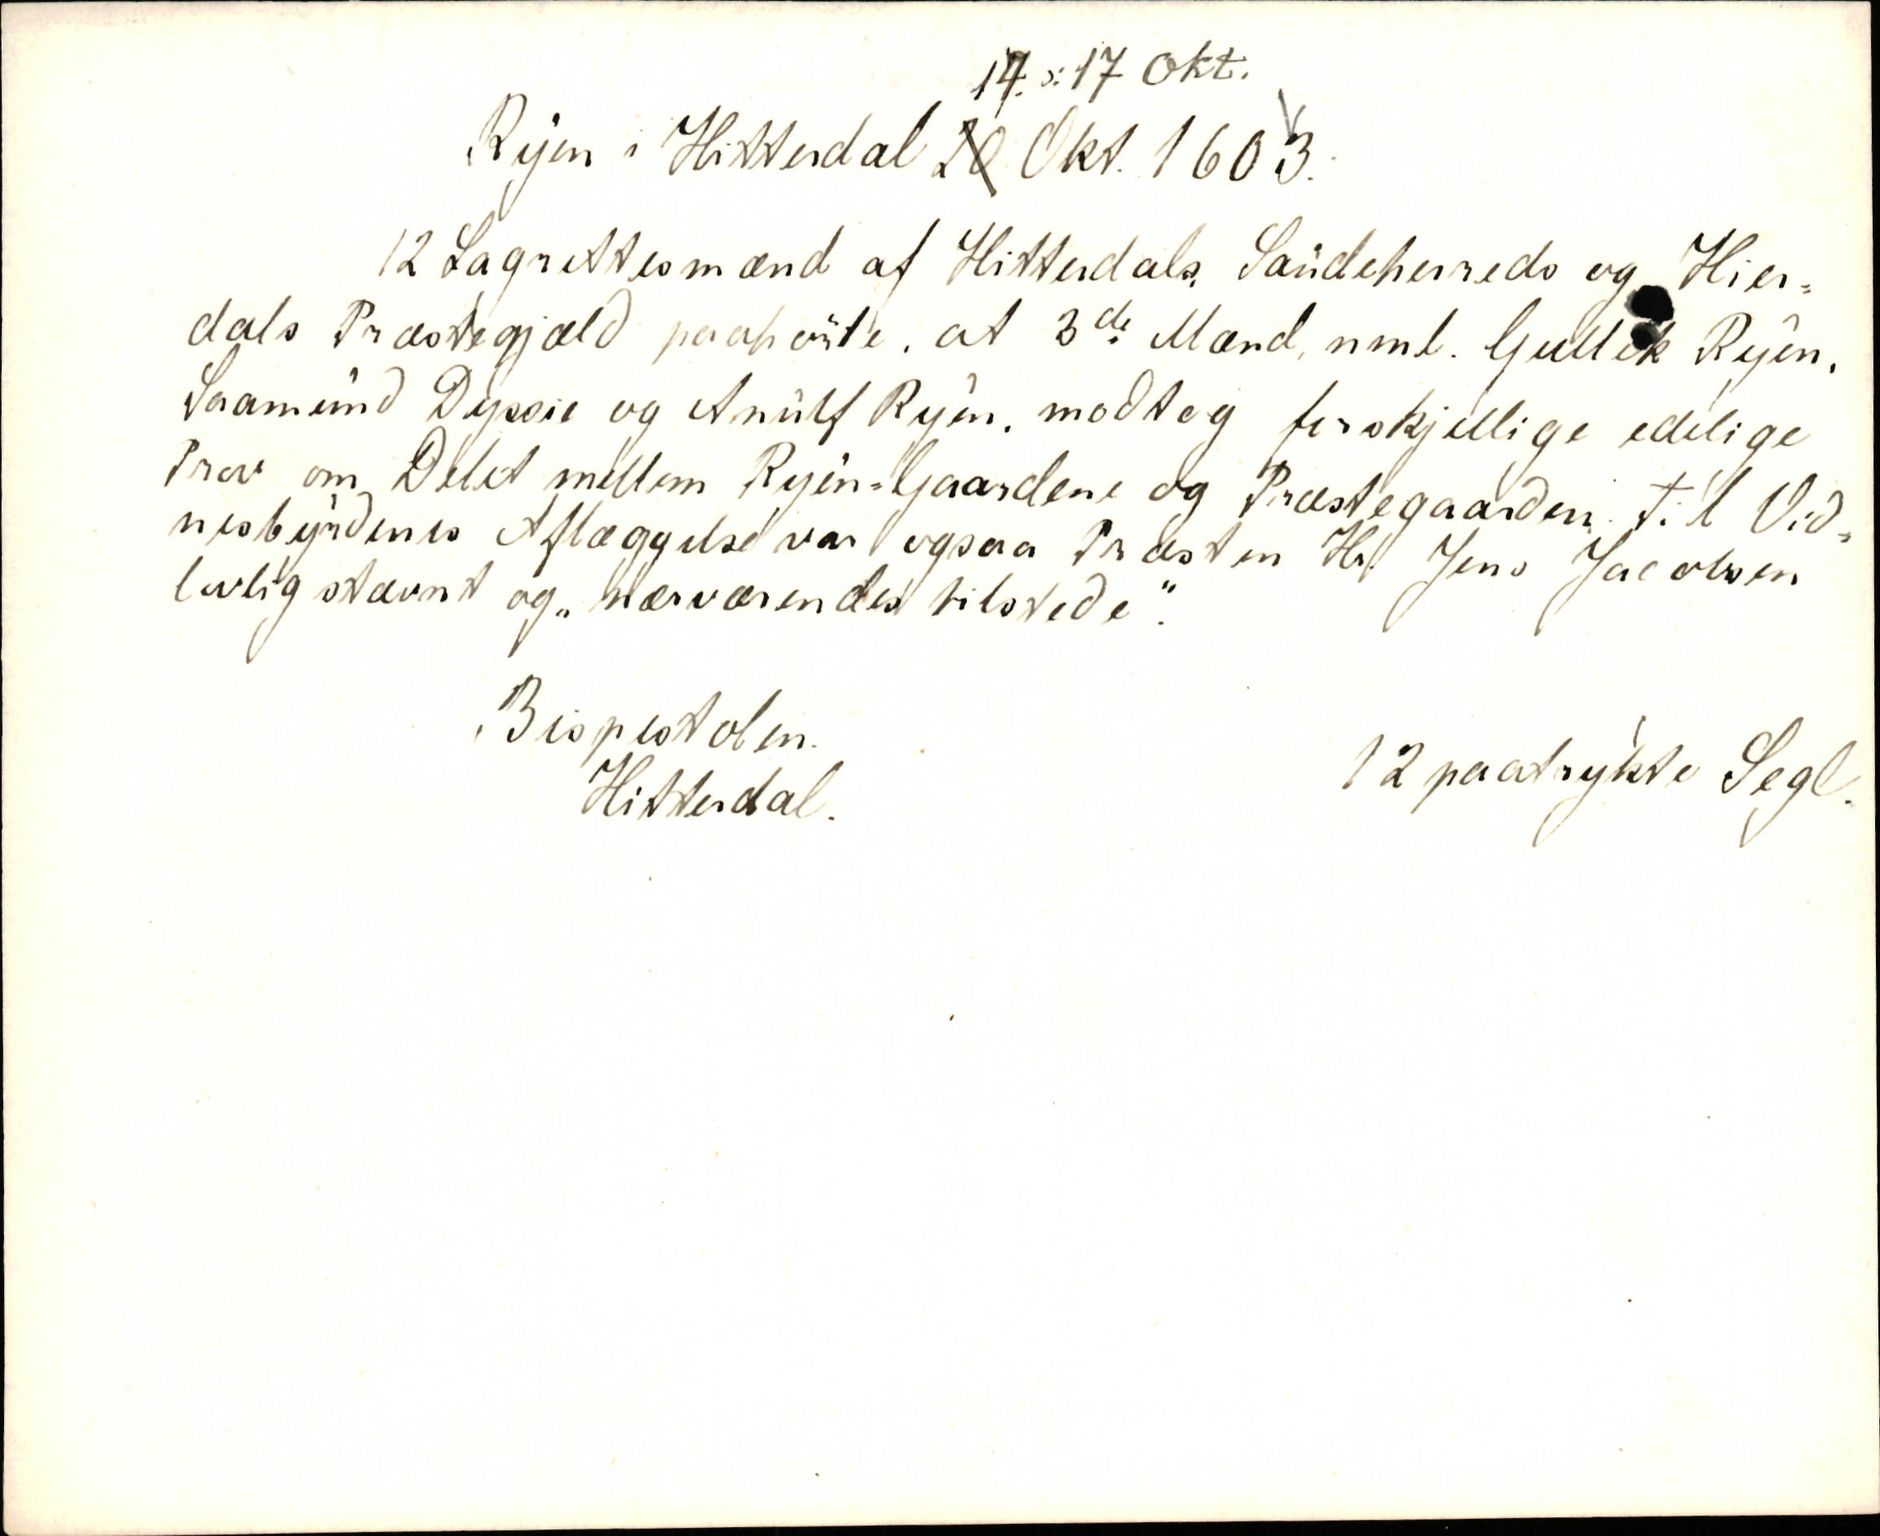 14. ɔ: 17 Okt.
Ryen i Hitterdal 20 Okt. 1603.
12 Lagrettesmænd af Hitterdals, Saudeherreds og Hier-
dals Præstegjæld paahørte, at 3de Mænd, nml. Gullek Ryen,
Saamund Dyssie og Anulf Ryen, modtog forskjellige edelige
Prov om Delet mellem Ryen-Gaardene og Præstegaarden. Til Vid-
nesbyrdenes Aflæggelse var ogsaa Præsten Hr. Jens Jacobsen
lovlig stævnt og „nærværendes tilstede“.
Bispestolen.
Hitterdal.
12 paatrykte Segl.